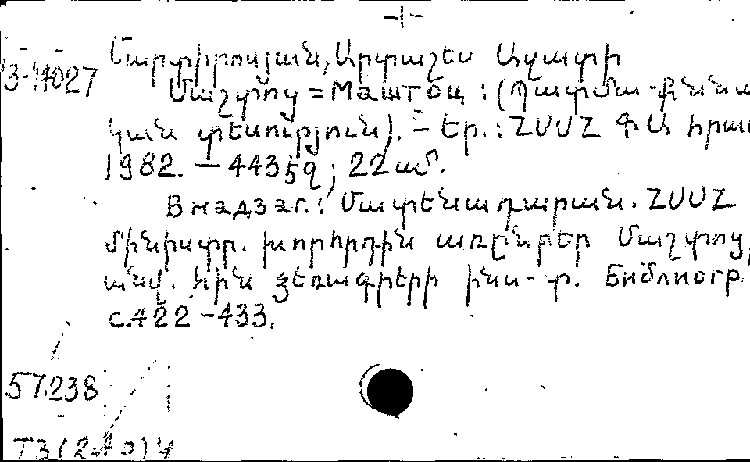 Մարտիրոսյան, Արտաշես Ազատի
Մաշտոց = Маштоц : (Պատմա-քննա
կան տեսություն). – Եր. : ՀՍՍՀ ԳԱ հրատ
1982. – 443 էջ ; 22 սմ.
В надзаг.: Մատենադարան. ՀՍՍՀ
մինիստր. խորհրդին առընթեր Մաշտոց,
անվ. հին ձեռագրերի ինս-տ. Библиогр
с. 422-433.
57.238